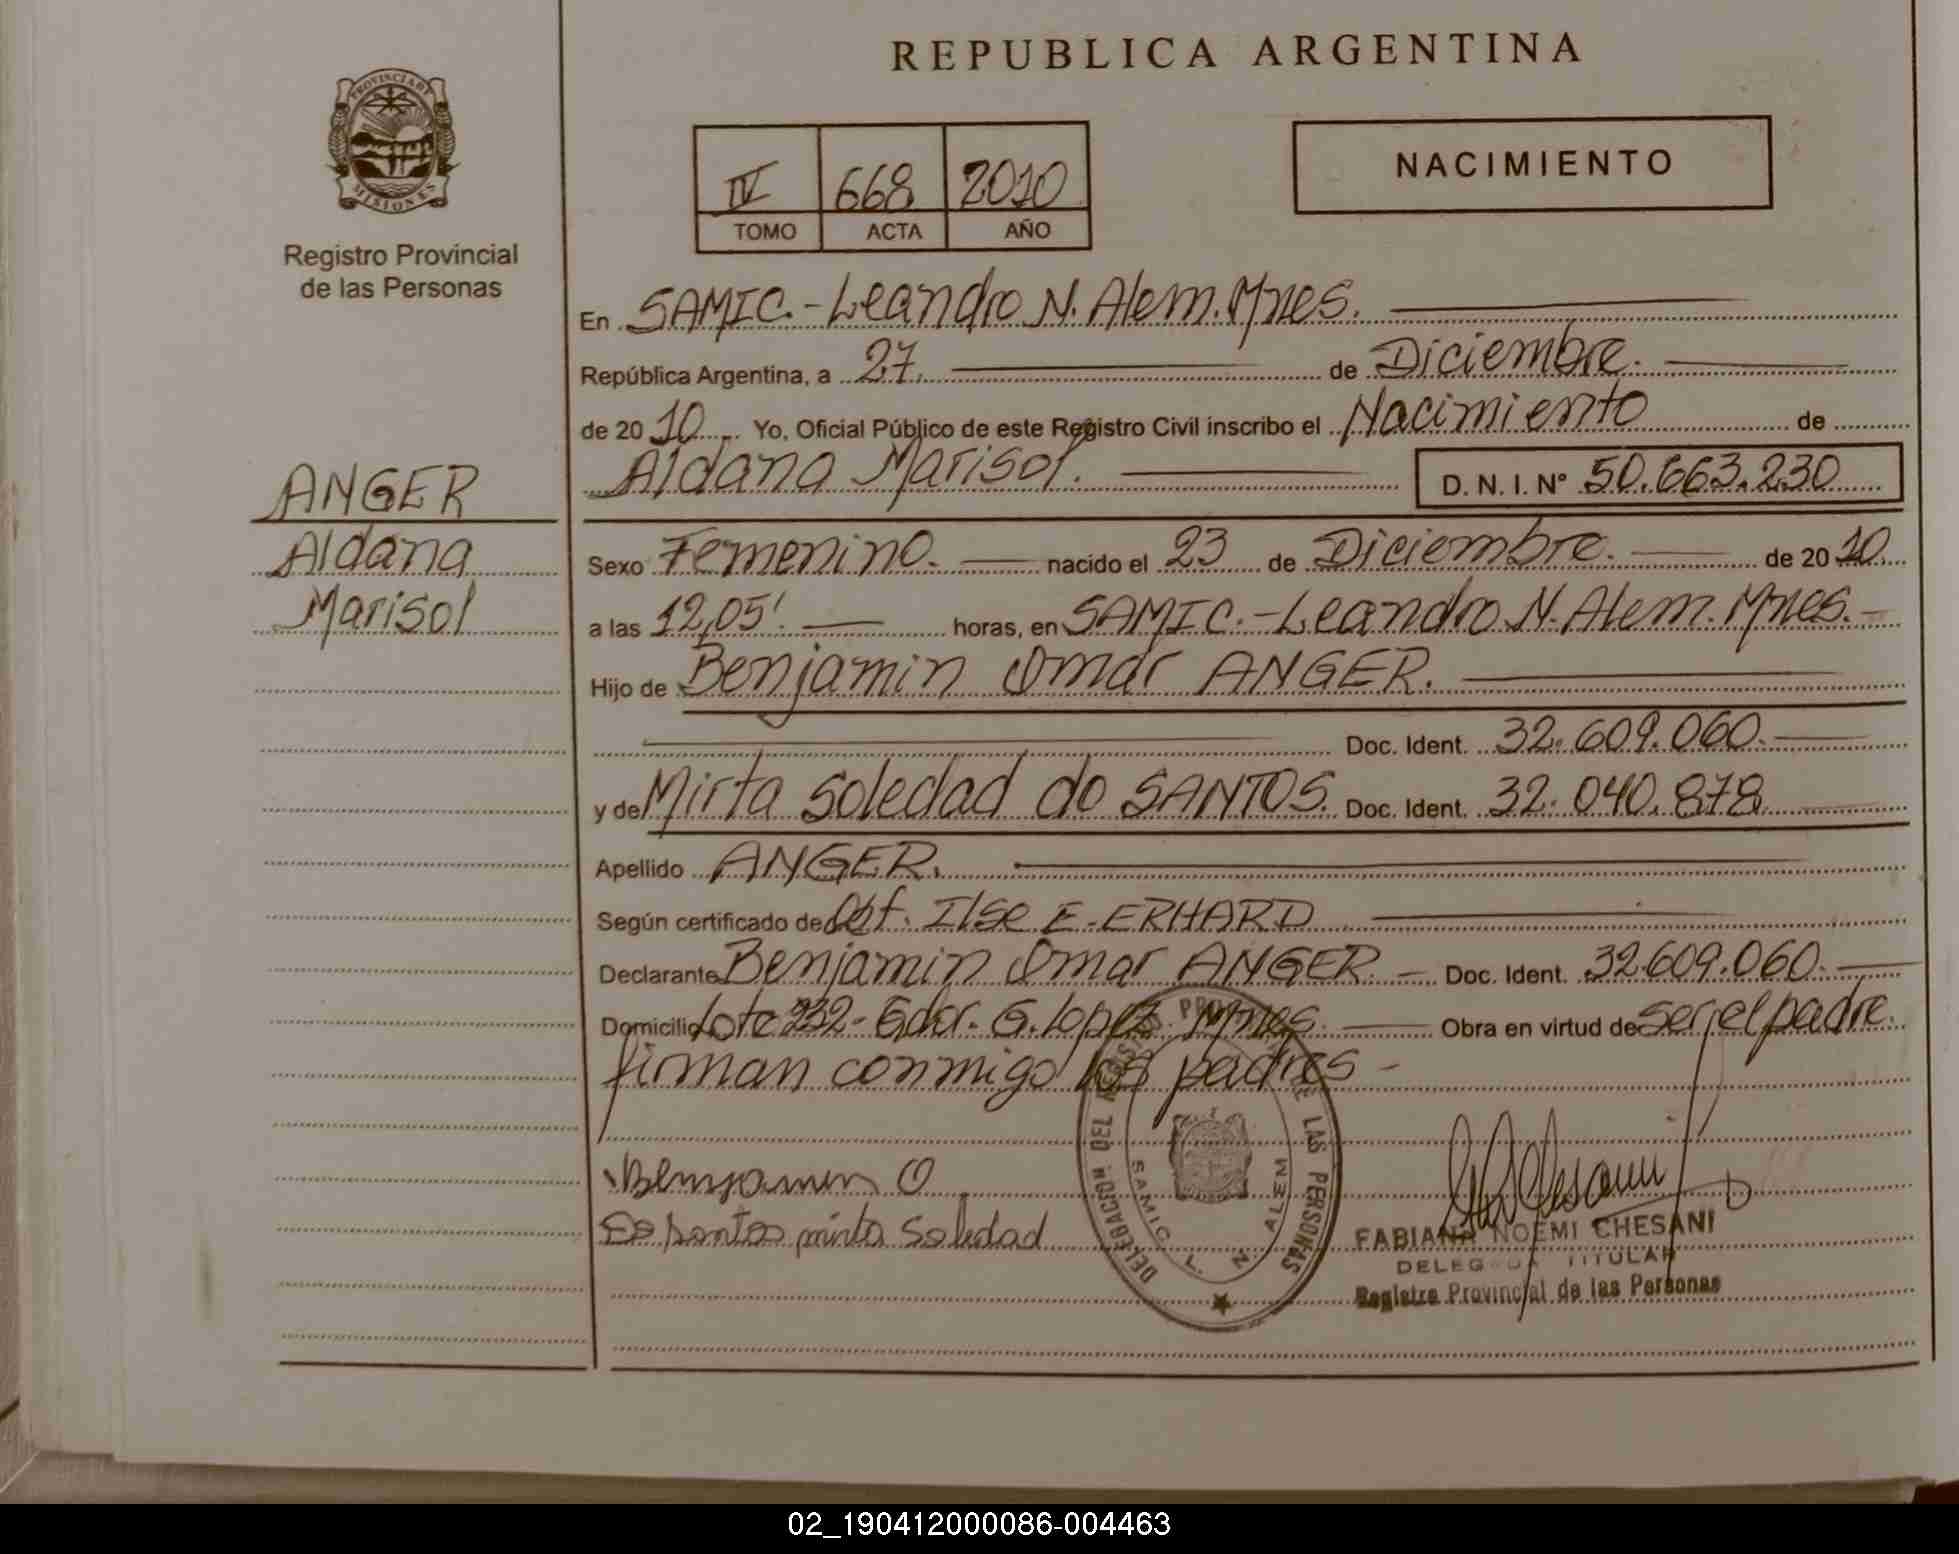 REPUBLICA ARGENTINA
PROVINCIA DE MISIONES
Registro Provincial
de las Personas
IV 668 2010
TOMO ACTA AÑO
NACIMIENTO
En SAMIC.-Leandro N. Alem. Mnes.
República Argentina, a 27. de Diciembre.
de 2010 Yo, Oficial Público de este Registro Civil inscribo el Nacimiento de
Aldana Marisol. D. N. I. N° 50.663.230
ANGER
Aldana
Marisol
Sexo Femenino. nacido el 23 de Diciembre. de 2010.
a las 12,05' horas, en SAMIC.-Leandro N. Alem. Mnes.-
Hijo de Benjamin Omar ANGER.
Doc. Ident. 32.609.060.
y de Mirta Soledad do SANTOS. Doc. Ident. 32.040.878
Apellido ANGER.
Según certificado de Obf. Ilse E. ERHARD
Declarante Benjamin Omar ANGER.- Doc. Ident. 32.609.060.
Domicilio Lote 232- Gdor. G. Lopez. Mnes. Obra en virtud de ser el padre.
firman conmigo los padres -
Benjamin O
santos mirta Soledad
DELEGACION DEL REGISTRO DE LAS PERSONAS
SAMIC L. N. ALEM
FABIANA NOEMI CHESANI
DELEGADA TITULAR
Registro Provincial de las Personas
02_190412000086-004463